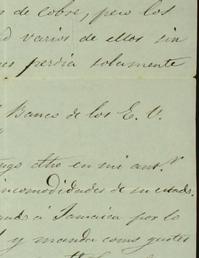 de cobre, pero los
varios de ellos sin
perdia solamente
Banco de los E. U.
en mi ant.r
incomodidades de su estado.
á Jamaica por lo
y mandar como gustes